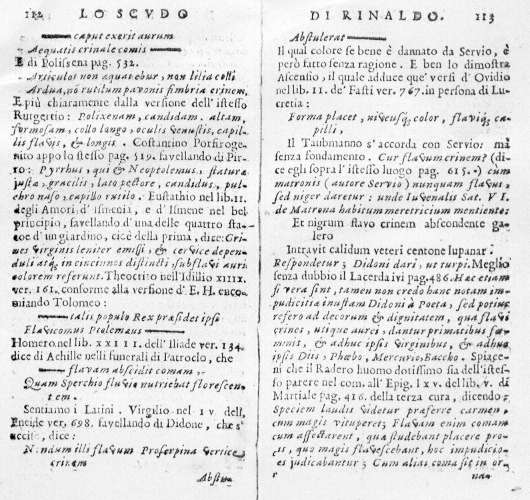 112 LO SCVDO
caput exerit aurum
Aequatis crinale comis
E di Polissena pag. 532.
Articulos non aquat ebur, non lilia colli
Ardua, nō rutilum pavonis fimbria crinem,
E più chiaramente dalla versione dell'istesso
Rutgersio: Polixenam, candidam, altam,
formosam, collo longo, oculis venustis, capil-
lis flavis, & longis. Costantino Porfiroge-
nito appo lo stesso pag. 519. favellando di Pir-
ro: Pyrrhus, qui & Neoptolemus, statura
justa, gracilis, lato pectore, candidus, pul-
chro naso, capillo rutilo. Eustathio nel lib. II.
degli Amori d'Ismenia, e d'Ismene nel bel
principio, favellando d'una delle quattro sta-
tue d'un giardino, cioè della prima, dice: Cri-
nes virginis leniter emissi, & è cervice depen-
duli atq; in cincinnos distincti, subflavi auri
colorem referunt. Theocrito nell'Idilio XIIII.
ver. 161. conforme alla versione d'E. H. enco-
miando Tolomeo:
talis populo Rex præsidet ipsi
Flavicomus Ptolemæus
Homero nel lib. XXIII. dell'Iliade ver. 134.
dice di Achille nelli funerali di Patroclo, che
flavam abscidit comam
Quam Sperchio fluvio nutriebat florescen-
tem.
Sentiamo i Latini. Virgilio nel IV dell'
Eneide ver. 698. favellando di Didone, che s'
uccito, dice:
Nondum illi flavum Proserpina vertice
crinem
Abstu-
DI RINALDO. 113
Abstulerat
Il qual colore se bene è dannato da Servio, è
però fatto senza ragione. E ben lo dimostra
Ascensio, il quale adduce que' versi d'Ovidio
nel lib. II. de' Fasti ver. 767. in persona di Lu-
cretia:
Forma placet, niveusq; color, flaviq; ca-
pilli,
Il Taubmanno s'accorda con Servio: mà
senza fondamento. Cur flavum crinem? (di-
ce egli sopra l'istesso luogo pag. 615.) cùm
matronis (autore Servio) nunquam flavus,
sed niger daretur: undo Iuvenalis Sat. VI.
de Matrona habitum meretricium mentiente:
Et nigrum flavo crinem abscondente ga-
lero
Intravit calidum veteri centone lupanar.
Respondetur; Didoni dari, ut turpi. Meglio
senza dubbio il Lacerda ivi pag. 486. Hæc etiam
si vera sint, tamen non credo hanc notam im-
pudicitia inustam Didoni à Poeta, sed potius
refero ad decorem & dignitatem, qua flavi
crines, utique aurei, dantur primatibus fœ-
minis, & adhuc ipsis virginibus, & adhuc
ipsis Diis, Phœbo, Mercurio, Baccho. Spiace-
ni che il Radero huomo dotissimo sia dell'istes-
so parere nel com. all'Epig. lxv. del lib. v. di
Martiale pag. 416. della terza cura, dicendo:
Speciem laudis videtur præferre carmen,
cum magis vituperet; Flavam enim comam
cum affectarent, qua studebant placere pro-
cis, quo magis flavescebant, hoc impudicio-
res judicabantur; Cum alias coma sic in or-
P na-